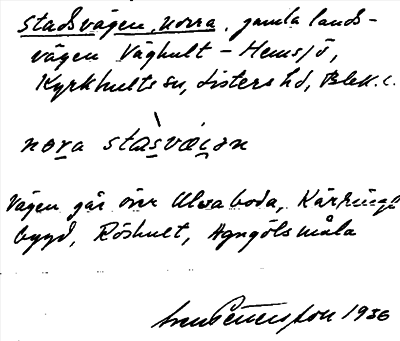 stadsvägen, norra, gamla lands-
vägen Våghult - Hemsjö,
Kyrkhults sn, Listers hd, Blek. l.
nora stasvæiən
Vägen går över Ulvaboda, Kärrings-
bygd, Röshult, Agngölsmåla
Sven Petersson 1936